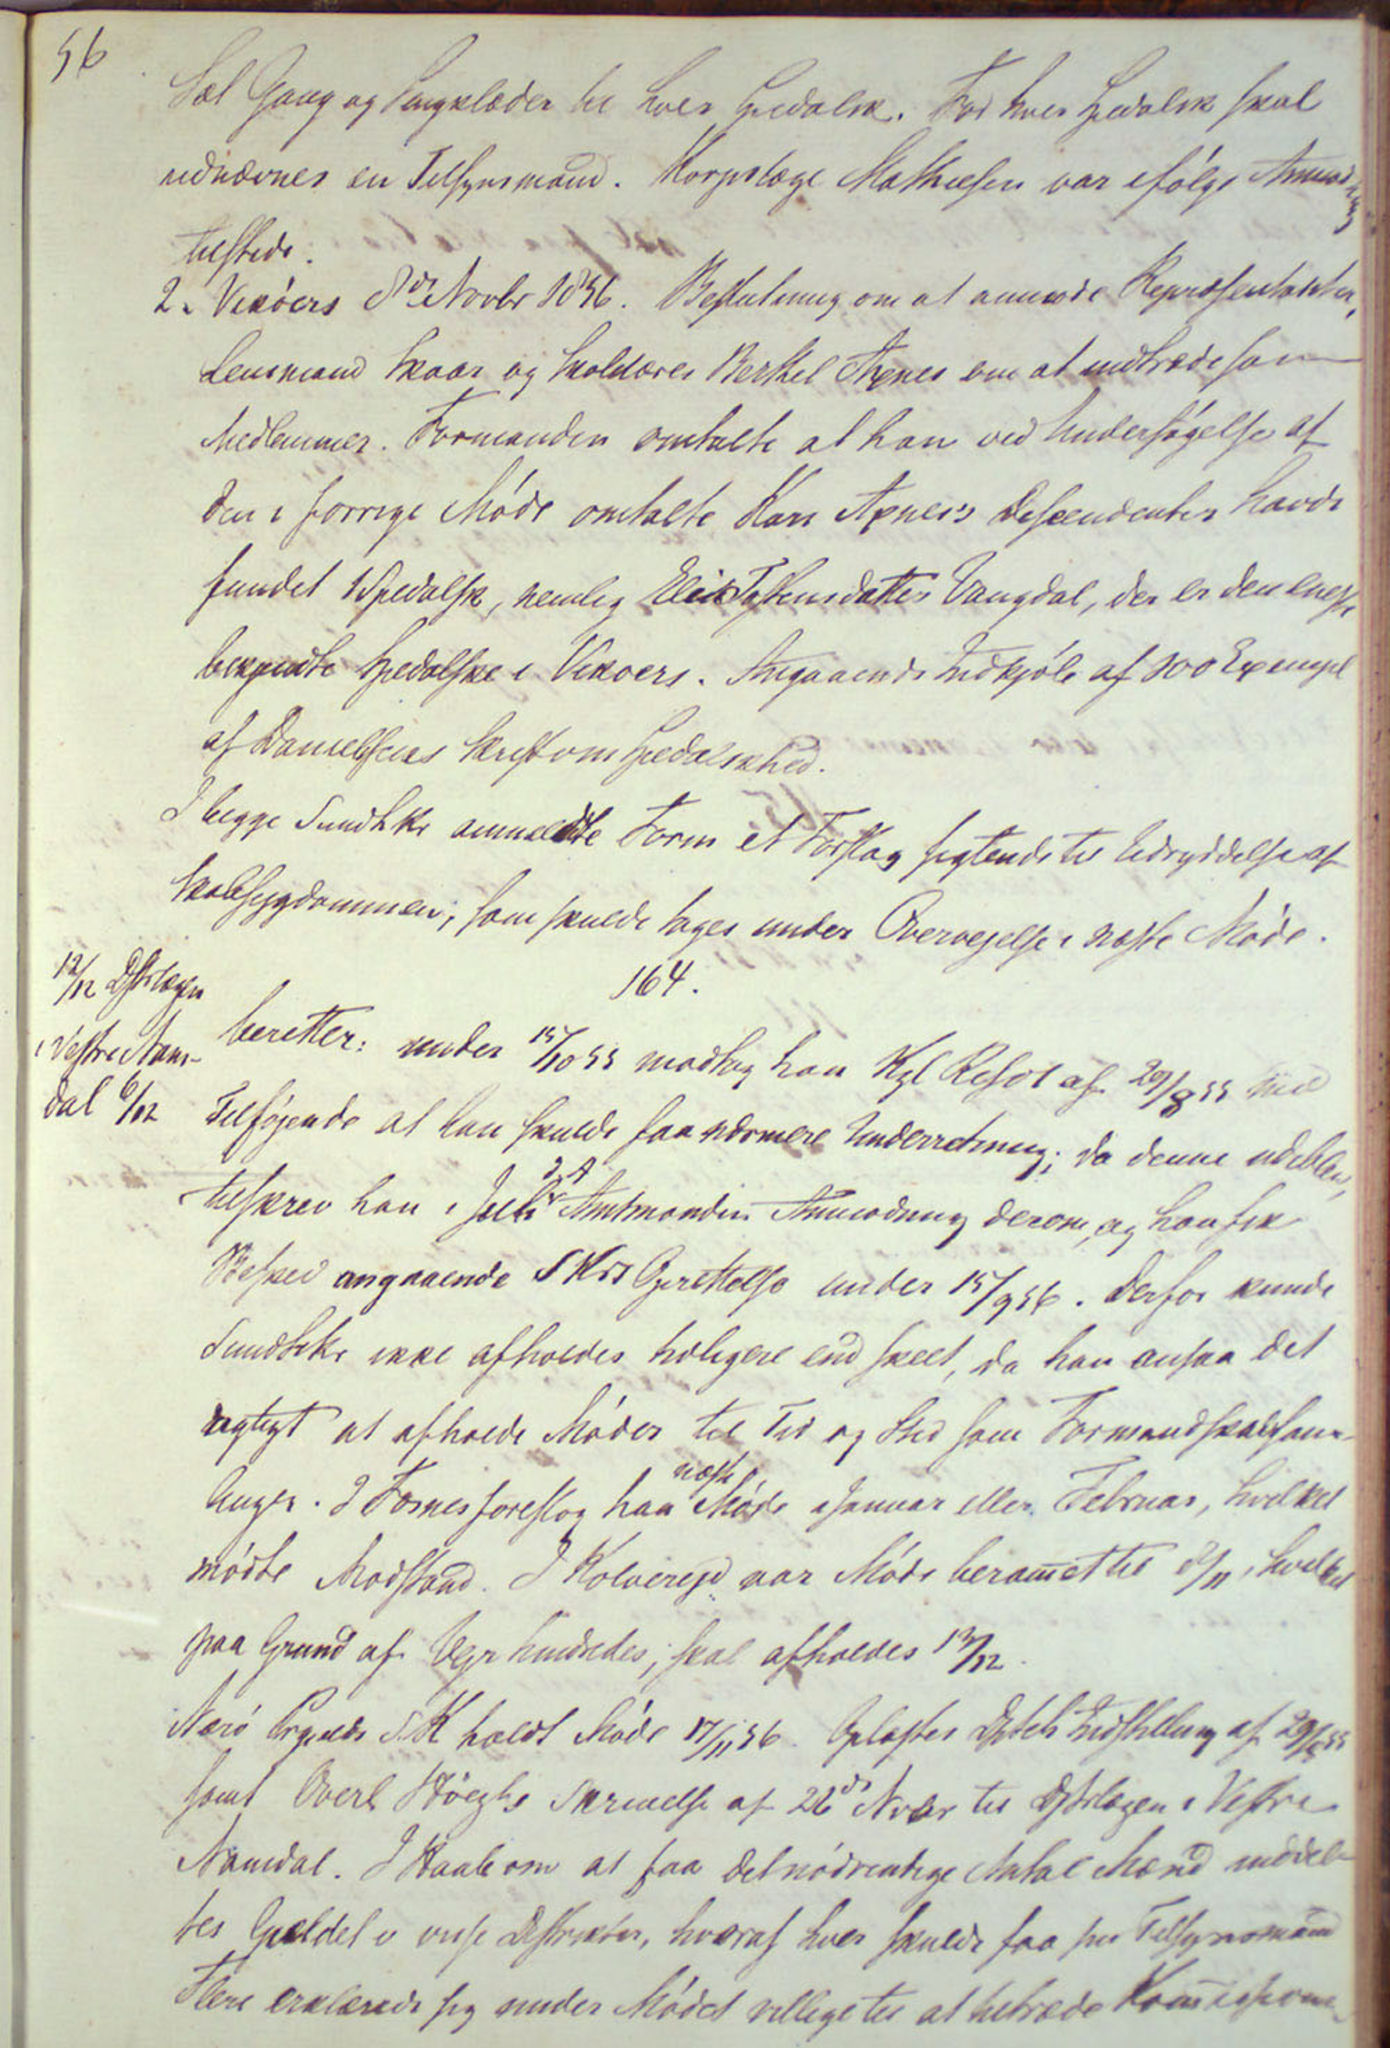 56
Sæt Gang og Sengklæder til hver Spedalsk. For hver Spedalsk skal
udnævnes en Tilsynsmand. Korpslæge Mathiesen var ifølge Anmodning
tilstede.
2. Viköers 8de Novbr 1856. Beslutning om at anmode Repræsentanter,
Lensmand Skaar og Skolelærer Berthel Axnes om at indtræde som
Medlemmer. Formanden omtalte at han ved Undersögelse af
den i forrige Möde omtalte Kari Axnes's Descendenter havde
fundet 1 Spedalsk, nemlig Tostensdatter Vangdal, der er den eneste
bekjendte Spedalske i Vikoers. Angaaende Indkjöb af 100 Exempl
af Danielsens Skrift om Spedalskhed.
I begge Sundhk anmeldte Form et Forslag sigtende til Udryddelse af
Skabsygdommen, som skulde tages under Overvejelse i næste Möde.
164.
12/12 Dstrlægen
i Vestre Nam-
dal 6/12
beretter: under 15/10 55 modtog han Kgl Resol af 29/8 55 med
Tilföjende at han skulde faa nærmere Underretning; da denne udeblev,
tilskrev han i Juli d. A. Amtmanden Anmodning derom, og han fik
Besked angaaende SKrs Oprettelse under 15/9 56. Derfor kunde
Sundhkr ikke afholdes tidligere end skeet, da han ansaa det
rigtigt at afholde Möder til Tid og Sted som Formandskabssam-
linger. I Fosnes foreslog han næste Möde i Januar eller Februar, hvilket
mödte Modstand. I Kolvereid var Möde berammet til 8/11, hvilket
paa Grund af Vejr hindredes, skal afholdes 13/12.
Nærö Prgjelds S.K. holdt Möde 17/11 56. Oplæstes Dptets Indstilling af 29/8 55
samt Overl Höeghs Skrivelse af 22de Novbr til Dstrlægen i Vestre
Namdal. I Haab om at faa det nödvendige Antal Mænd inddel-
tes Gjældet i visse Distrikter, hvoraf hver skulde faa sin Tilsynsmand
Flere erklærede sig under Mödet villige til at tiltræde Kommissionen